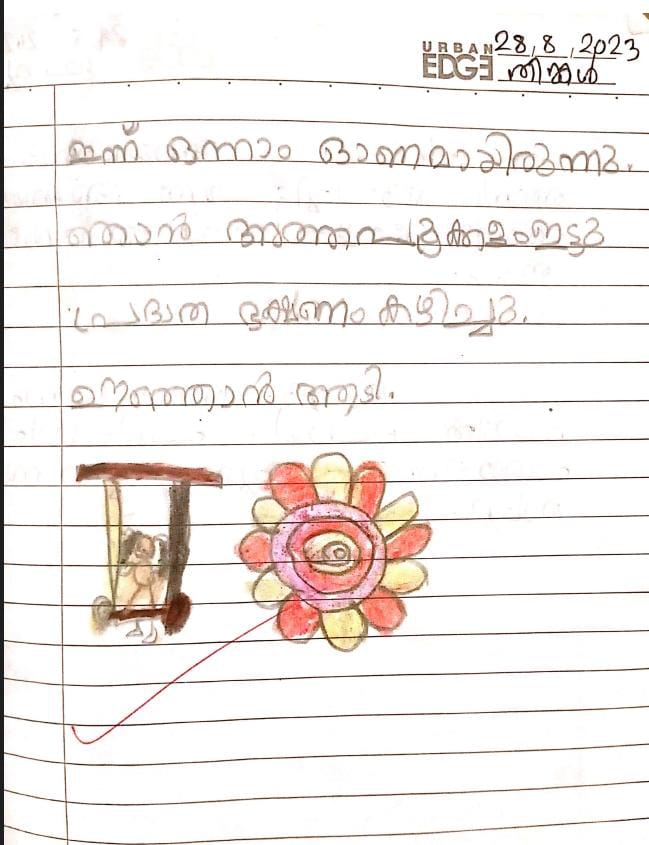 URBAN EDGE 28,8,2023
തിങ്കൾ
ഇന്ന് ഒന്നാം ഓണമായിരുന്നു.
ഞാൻ അത്തപൂക്കളംഇട്ടു
പ്രഭാത ഭക്ഷണം കഴിച്ചു.
ഊഞ്ഞാൻ ആടി.